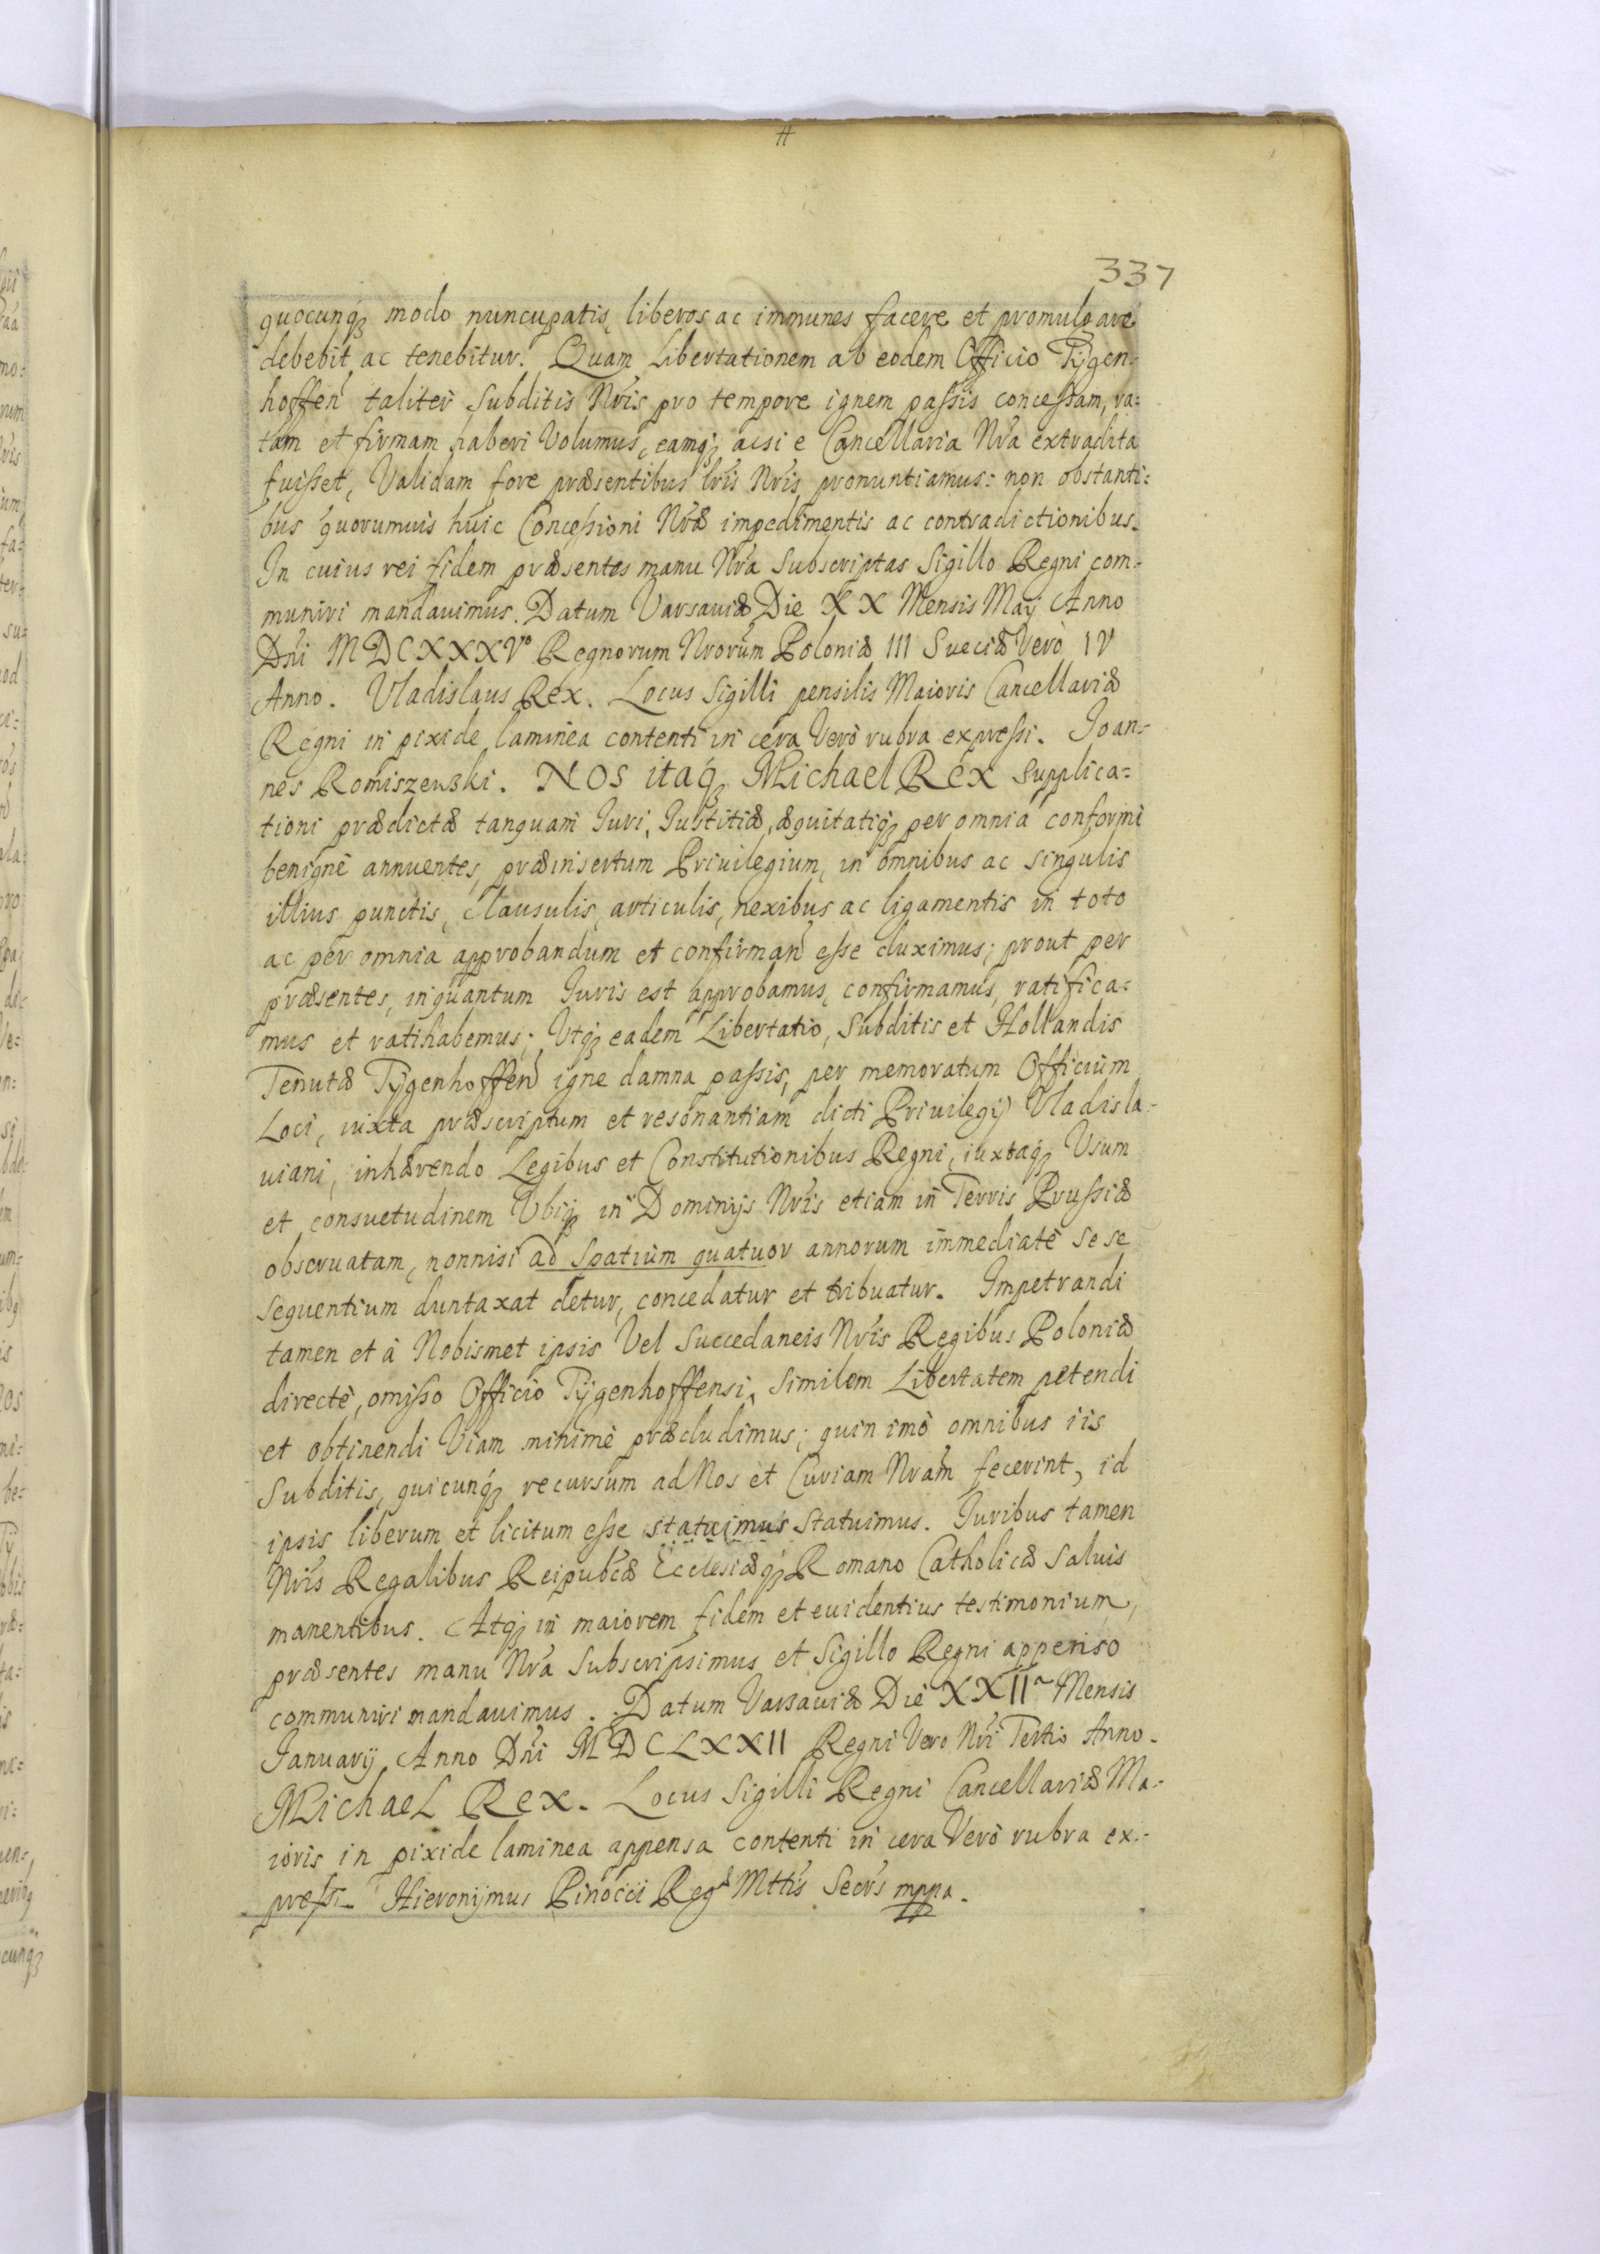 337
quocunq́ꝫ modo nuncupatis, liberos ac immunes facere et promulgare
debebit ac tenebitur. Quam Libertationem ab eodem Officio Tÿgen-
hoffen̄ taliter Subditis Nr̄is pro tempore ignem passis concessam, ra:
tam et firmam haberi Volumus, eamq́ꝫ acsi e Cancellaria Nr̄a extradita
fuisset, Validam fore præsentibus lr̄is Nr̄is pronuntiamus: non obstanti:
bus quorumuis huic Concessioni Nr̄æ impedimentis ac contradictionibus.
In cuius rei fidem præsentes manu Nr̄a Subscriptas Sigillo Regni com-
muniri mandauimus. Datum Varsauiæ Die XX Mensis Maij Anno
Dn̄i MDCXXXVº Regnorum Nr̄orum Poloniæ III Sueciæ Verò IV
Anno. Vladislaus Rex. Locus Sigilli pensilis Maioris Cancellariæ
Regni in pixide laminea contenti in cera Verò rubra expressi. Joan-
nes Romiszewski. NOS itaq́ꝫ Michael Rex Supplica=
tioni prædictæ tanquam Juri, Justitiæ, æquitatiq́ꝫ per omnia conformi
benignè annuentes, præinsertum Priuilegium, in omnibus ac singulis
illius punctis, Clausulis, articulis, nexibus ac ligamentis in toto
ac per omnia approbandum et confirman̄ esse duximus; prout per
præsentes, inquantum Juris est approbamus, confirmamus, ratifica=
mus et ratihabemus; Vtq́ꝫ eadem Libertatio, Subditis et Hollandis
Tenutæ Tÿgenhoffen̄ igne damna passis, per memoratum Officium
Loci, iuxta præscriptum et resonantiam dicti Priuilegij Vladisla-
uiani, inhærendo Legibus et Constitutionibus Regni, iuxtaq́ꝫ Vsum
et consuetudinem Vbiq́ꝫ in Dominijs Nr̄is etiam in Terris Prussiæ
obseruatam, nonnisi ad Spatium quatuor annorum immediatè se se
sequentium duntaxat detur, concedatur et tribuatur. Impetrandi
tamen et à Nobismet ipsis Vel Succedaneis Nr̄is Regibus Poloniæ
directè, omisso Officio Tÿgenhoffensi, Similem Libertatem petendi
et obtinendi Viam minimè præcludimus; quin imò omnibus iis
Subditis, quicunq́ꝫ recursum ad Nos et Curiam Nr̄am fecerint, id
ipsis liberum et licitum esse statuimus Statuimus. Juribus tamen
Nr̄is Regalibus Reipub̄cæ Ecclesiæq́ꝫ Romano Catholicæ Saluis
manentibus. Atq́ꝫ in maiorem fidem et euidentius testimonium,
præsentes manu Nr̄a Subscripsimus et Sigillo Regni appenso
communiri mandauimus. Datum Varsauiæ Die XXIIª Mensis
Januarij Anno Dn̄i MDCLXXII Regni Vero Nr̄i Tertio Anno.
Michael Rex. Locus Sigilli Regni Cancellariæ Ma-
ioris in pixide laminea appensa contenti in cera Verò rubra ex-
pressi. Hieronÿmus Pinocci Regᵃ Mttis Secr̄s mppa.